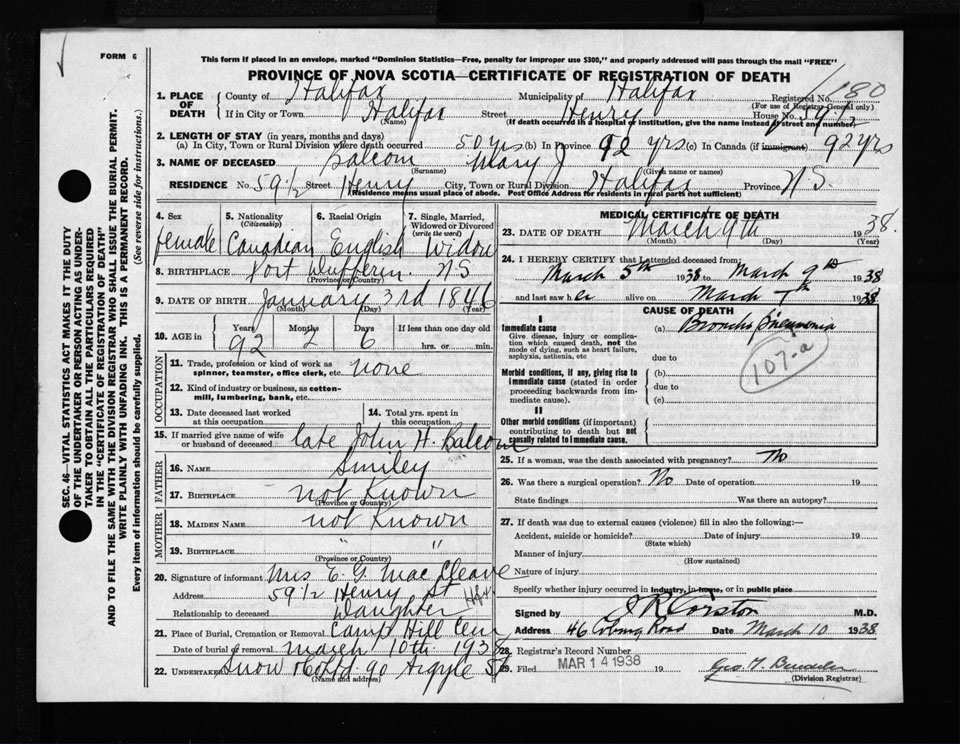 FORM 6
This form if placed in an envelope, marked "Dominion Statistics—Free, penalty for improper use $300," and properly addressed will pass through the mail "FREE"
PROVINCE OF NOVA SCOTIA—CERTIFICATE OF REGISTRATION OF DEATH
SEC. 46—VITAL STATISTICS ACT MAKES IT THE DUTY
OF THE UNDERTAKER OR PERSON ACTING AS UNDER-
TAKER TO OBTAIN ALL THE PARTICULARS REQUIRED
IN THE "CERTIFICATE OF REGISTRATION OF DEATH"
AND TO FILE THE SAME WITH THE DIVISION REGISTRAR WHO SHALL ISSUE THE BURIAL PERMIT.
WRITE PLAINLY WITH UNFADING INK. THIS IS A PERMANENT RECORD.
Every item of information should be carefully supplied. (See reverse side for instructions.)
1. PLACE OF DEATH County of Halifax Municipality of Halifax Registered No. 180
(For use of Registrar General only)
If in City or Town Halifax Street Henry House No. 59 1/2
(Name) (If death occurred in a hospital or institution, give the name instead of street and number)
2. LENGTH OF STAY (in years, months and days)
(a) In City, Town or Rural Division where death occurred 50 yrs (b) In Province 92 yrs (c) In Canada (if immigrant) 92 yrs
3. NAME OF DECEASED Balcom Mary J
(Surname) (Given name or names)
RESIDENCE No. 59 1/2 Street Henry City, Town or Rural Division Halifax Province N.S.
(Residence means usual place of abode. Post Office Address for residents in rural parts not sufficient)
4. Sex 5. Nationality (Citizenship) 6. Racial Origin 7. Single, Married, Widowed or Divorced (write the word)
female Canadian English Widow
8. BIRTHPLACE Port Dufferin N.S
(Province or Country)
9. DATE OF BIRTH January 3rd 1846
(Month) (Day) (Year)
10. AGE in Years Months Days If less than one day old
92 2 6 hrs. or min.
OCCUPATION
11. Trade, profession or kind of work as spinner, teamster, office clerk, etc. none
12. Kind of industry or business, as cotton-mill, lumbering, bank, etc.
13. Date deceased last worked at this occupation
14. Total yrs. spent in this occupation
15. If married give name of wife or husband of deceased late John H. Balcom
FATHER
16. NAME Smiley
17. BIRTHPLACE not Known
(Province or Country)
MOTHER
18. MAIDEN NAME not Known
19. BIRTHPLACE " "
(Province or Country)
20. Signature of informant Mrs E. G. MacCleave
Address 59 1/2 Henry St Hfx.
Relationship to deceased Daughter
21. Place of Burial, Cremation or Removal Camp Hill Cem
Date of burial or removal march 10th 1938
22. UNDERTAKER Snow & Co Ltd 90 Argyle St
(Name and address)
MEDICAL CERTIFICATE OF DEATH
23. DATE OF DEATH March 9th 1938.
(Month) (Day) (Year)
24. I HEREBY CERTIFY that I attended deceased from:
March 5th 1938 to March 9th 1938
and last saw her alive on March 7th 1938
CAUSE OF DEATH
I
Immediate cause
Give disease, injury or complication which caused death, not the mode of dying, such as heart failure, asphyxia, asthenia, etc
(a) Broncho Pneumonia
107-a
due to
Morbid conditions, if any, giving rise to immediate cause (stated in order proceeding backwards from immediate cause).
(b)
due to
(c)
II
Other morbid conditions (if important) contributing to death but not causally related to immediate cause.
25. If a woman, was the death associated with pregnancy? No
26. Was there a surgical operation? No Date of operation 19
State findings Was there an autopsy?
27. If death was due to external causes (violence) fill in also the following:—
Accident, suicide or homicide? Date of injury 19
(State which)
Manner of injury
(How sustained)
Nature of injury
Specify whether injury occurred in industry, in home, or in public place
Signed by J R Corston M.D.
Address 46 Coburg Road Date March 10 1938.
28. Registrar's Record Number
29. Filed MAR 14 1938 19
(Division Registrar)